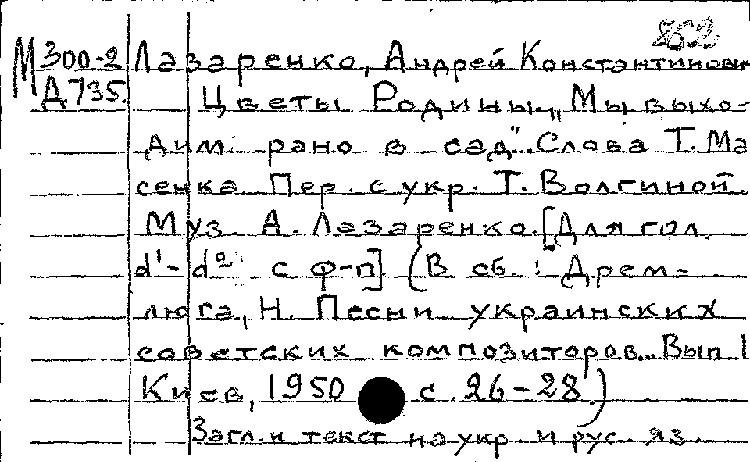 862
М 300-2 Лазаренко, Андрей Константинович
Д 735. Цветы Родины. „Мы выхо-
дим рано в сад". Слова Т. Ма
сенка. Пер. с укр. Т. Волгиной.
Муз. А. Лазаренко. [Для гол.
d¹-d² с ф-п] (В сб.: Дрем-
люга, Н. Песни украинских
советских композиторов. Вып 1
Киев, 1950 с. 26-28.)
Загл. и текст на укр. и рус. яз.